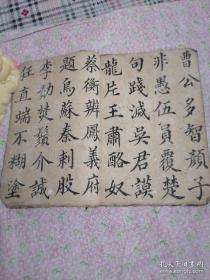 曹公多智顏子
非愚伍員覆楚
句踐滅吳君謨
龍片王肅酪奴
蔡衡辨鳳義府
題烏蘇秦刺股
李勣焚鬚介誠
狂直端不糊塗